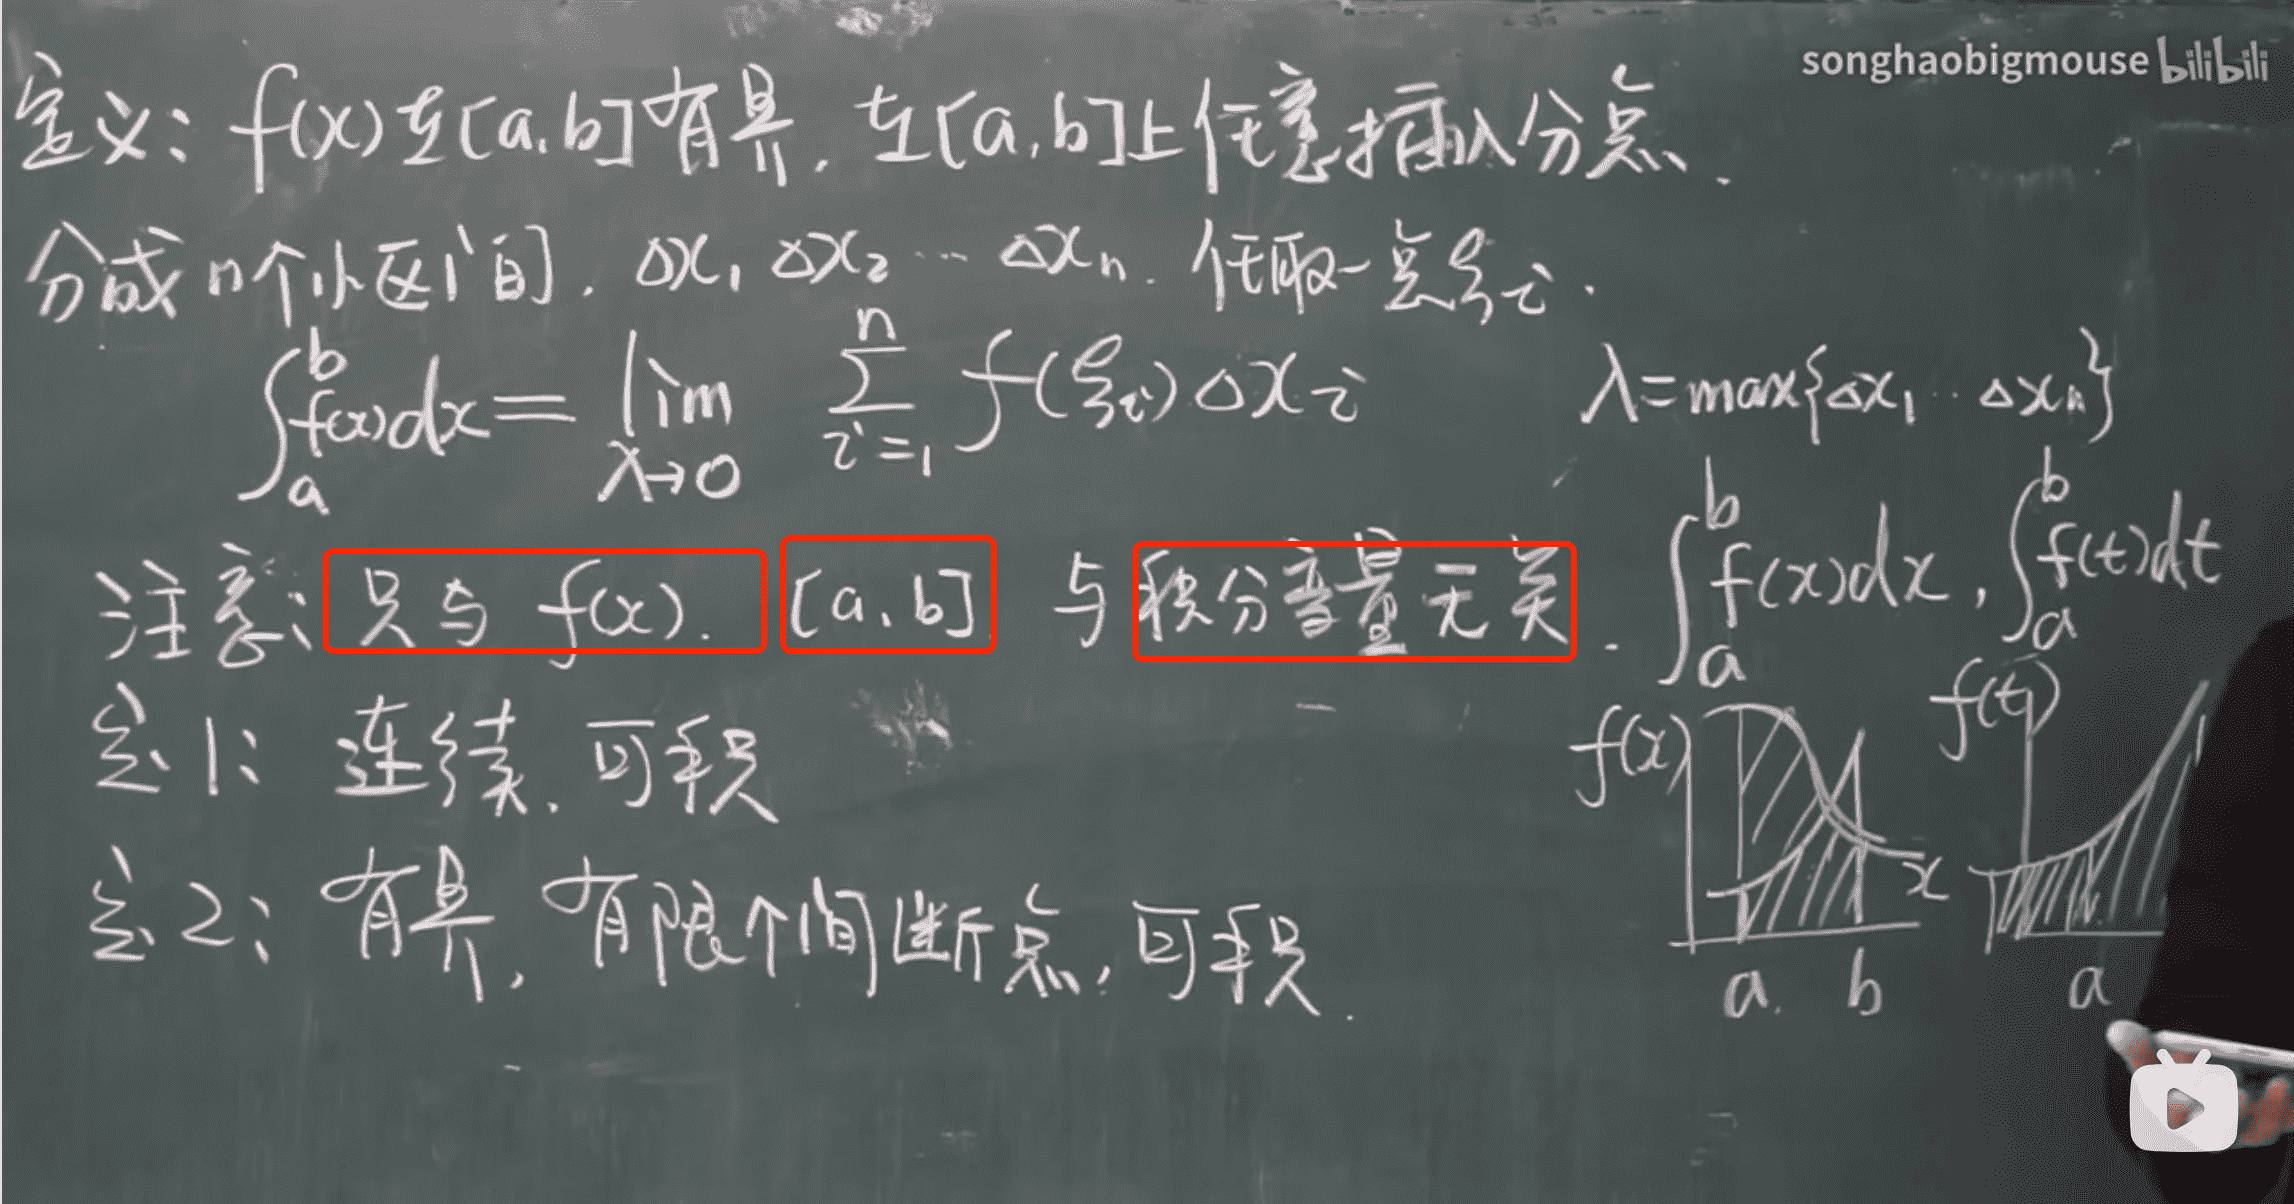 songhaobigmouse bilibili
定义：f(x)在[a,b]有界，在[a,b]上任意插入分点、
分成n个小区间．Δx₁ Δx₂ … Δxₙ．任取一点ξᵢ．
∫ₐᵇ f(x)dx = lim_{λ→0} ∑_{i=1}^{n} f(ξᵢ)Δxᵢ
λ=max{Δx₁‥Δxₙ}
注意：只与 f(x)．[a,b] 与积分变量无关．
∫ₐᵇ f(x)dx，∫ₐᵇ f(t)dt
定1：连续、可积
定2：有界，有限个间断点，可积．
f(x) x a. b
f(t) a